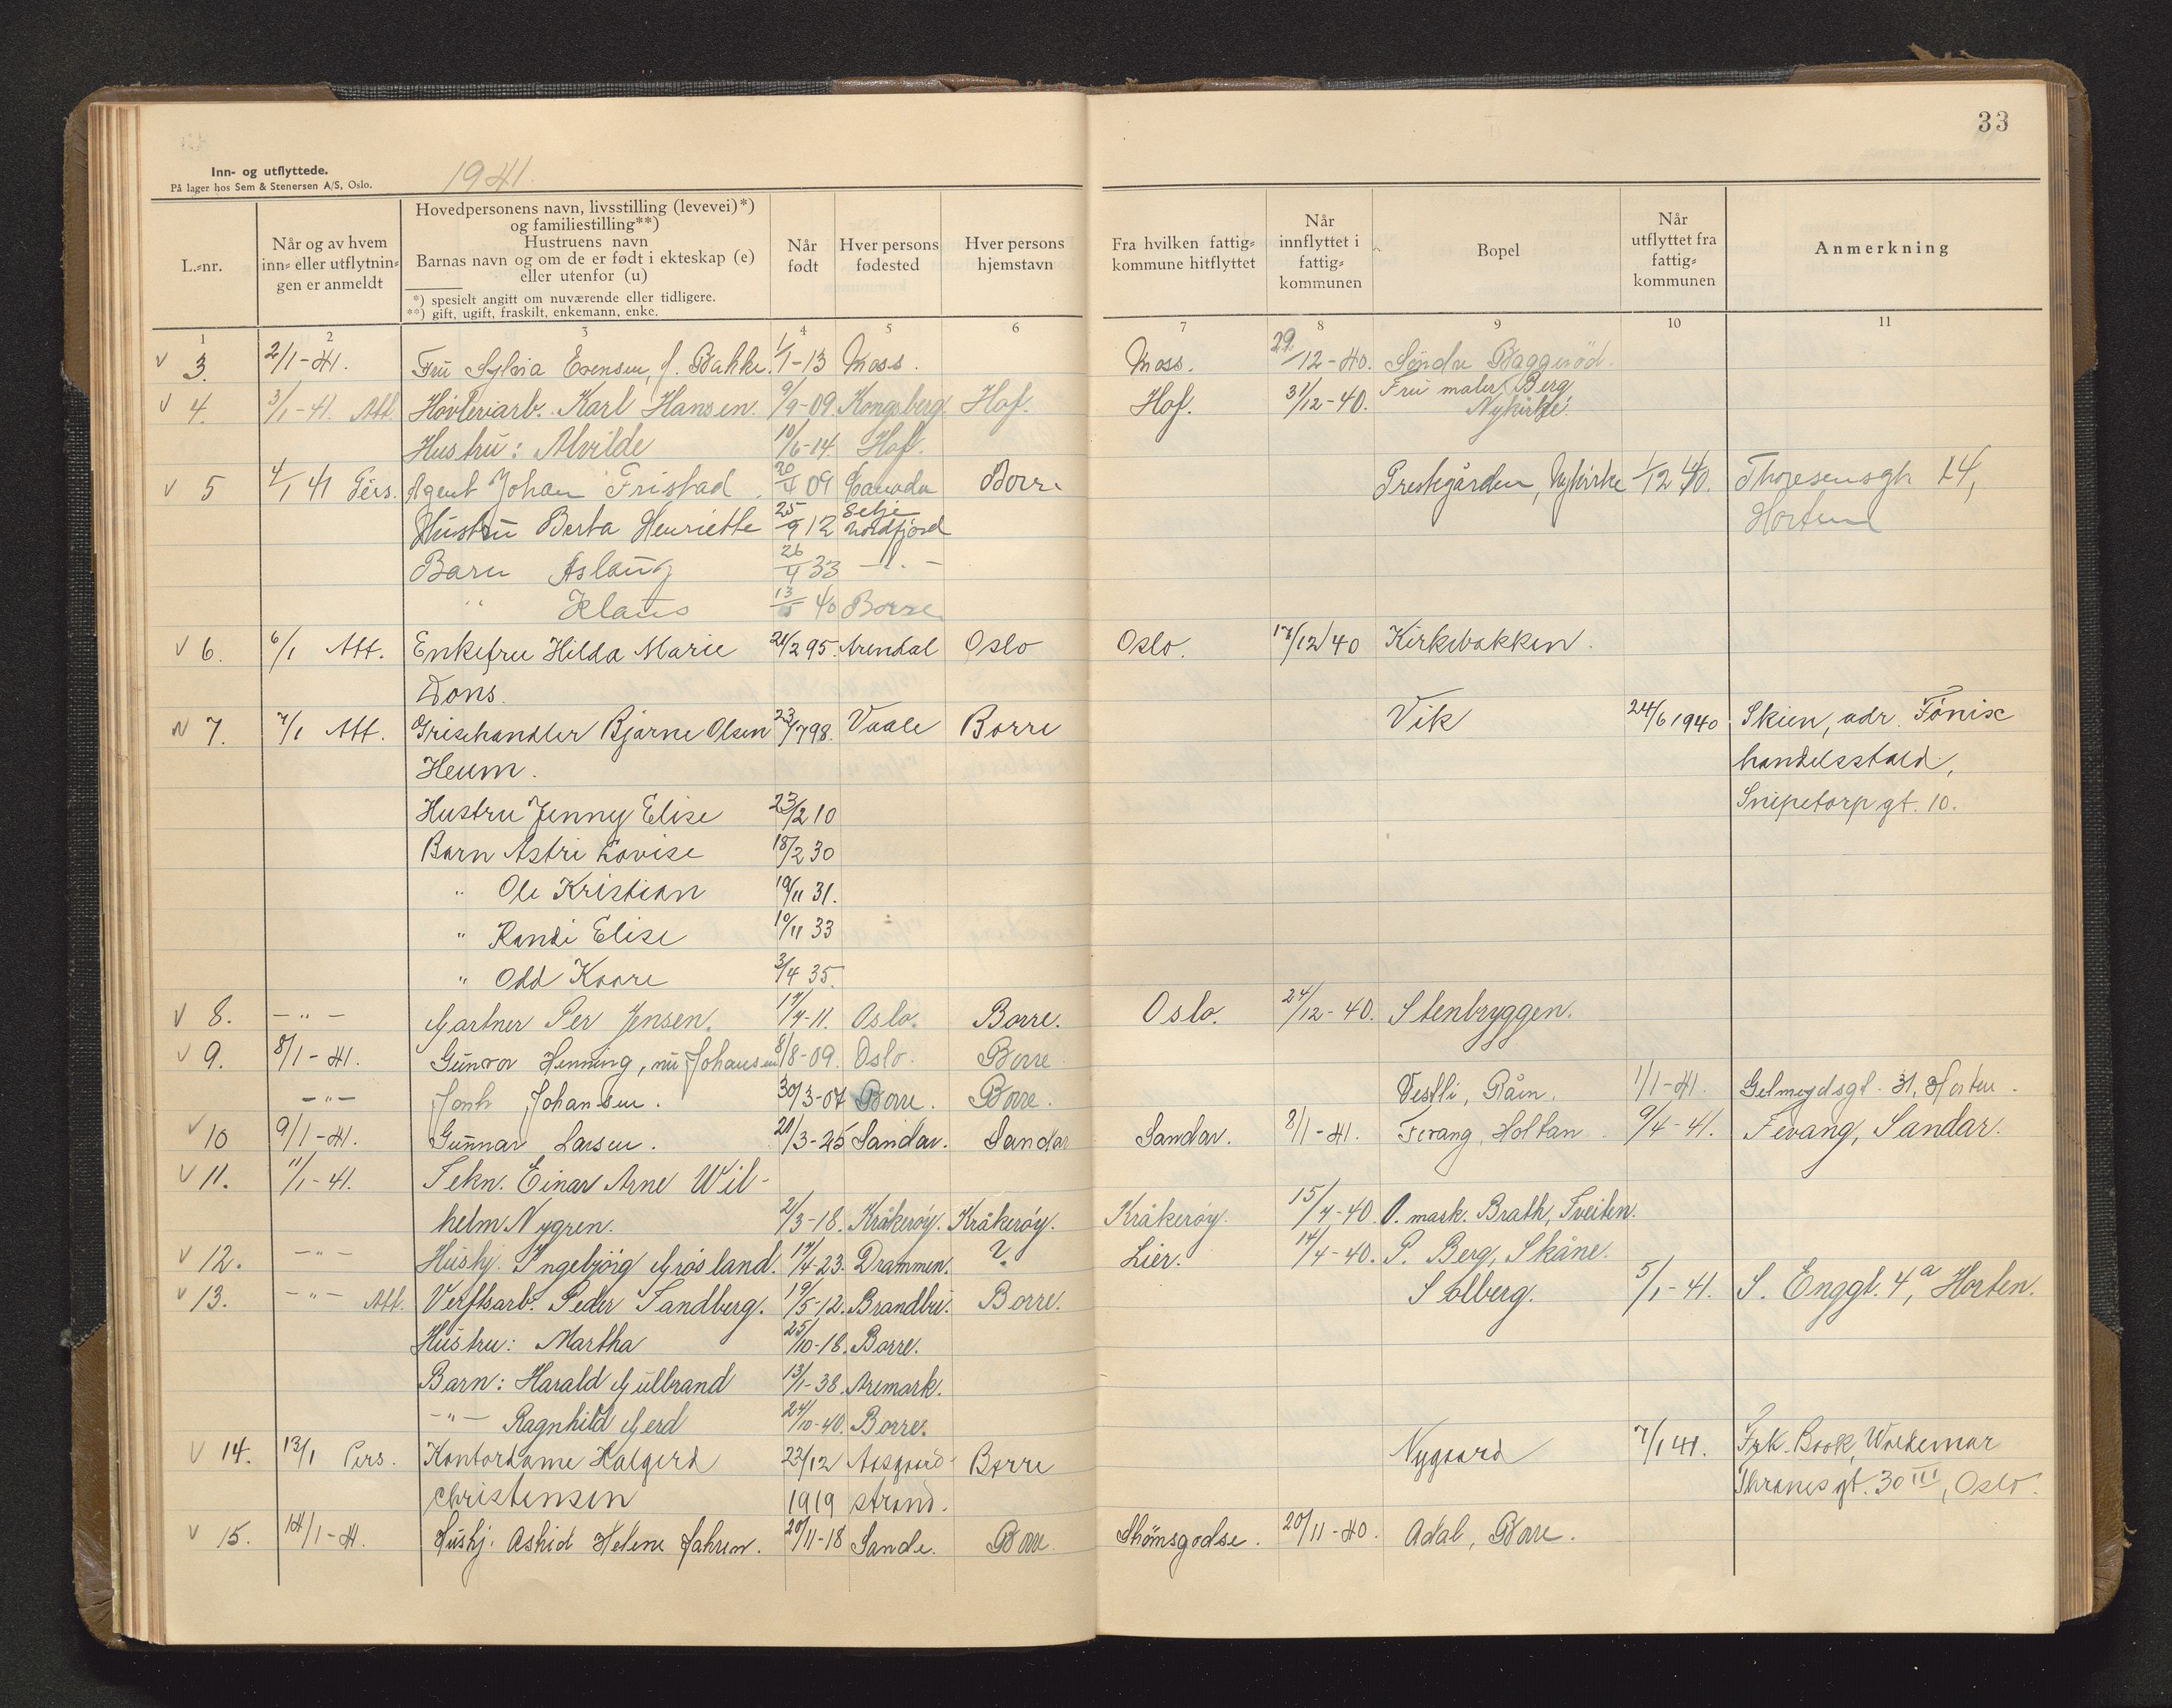 33
Inn- og utflyttede.
På lager hos Sem & Stenersen A/S, Oslo.
1941.
L.-nr.
Når og av hvem inn- eller utflytnin- gen er anmeldt
Hovedpersonens navn, livsstilling (levevei)*)
og familiestilling**)
Hustruens navn
Barnas navn og om de er født i ekteskap (e)
eller utenfor (u)
*) spesielt angitt om nuværende eller tidligere.
**) gift, ugift, fraskilt, enkemann, enke.
Når født
Hver persons fødested
Hver persons hjemstavn
Fra hvilken fattig- kommune hitflyttet
Når innflyttet i fattig- kommunen
Bopel
Når utflyttet fra fattig- kommunen
Anmerkning
1 2 3 4 5 6 7 8 9 10 11
v 3. 2/1-41. Fru Sylvia Evensen, f. Bakke. 1/1-13 Moss. Moss. 29/12-40. Søndre Baggerød.
v 4. 3/1-41. Att. Høvleriarb. Karl Hansen. 9/9-09. Kongsberg. Hof. Hof. 31/12-40. Fru maler Berg
Nykirke.
Hustru: Alvilde 10/6-14. Hof.
v 5 4/1 41 Pers. Agent Johan Fristad. 20/4 09 Canada Borre Prestegården, Nykirke 1/12 40. Thoresensgt 14,
Hustru Berta Henriette 25/9 12 Selje Nordfjord Horten
Barn Aslaug 26/4 33 -"-
" Klaus 13/5 40 Borre
v 6. 6/1 Att. Enkefru Hilda Marie 21/2 95. Arendal Oslo Oslo. 17/12 40 Kirkebakken.
Dons.
v 7. 7/1 Att. Grisehandler Bjarne Olsen 23/7 98. Vaale Borre Vik 24/6 1940 Skien, adr. Fønix
Heum. handelsstald,
Hustru Jenny Elise 23/2 10 Snipetorp gt. 10.
Barn Astri Lovise 18/2 30
" Ole Kristian 19/11 31.
" Randi Elise 10/11 33
" Odd Kaare 3/4 35.
v 8. -"- Gartner Per Jensen. 17/4-11. Oslo. Borre. Oslo. 24/12-40. Stenbryggen.
v 9. 8/1-41. Gunvor Henning, nu Johansen 8/8-09. Oslo. Borre.
-"- Johansen. 30/3-07 Borre. Borre. Vestli, Råen. 1/1-41. 31, Horten.
v 10 9/1-41. Gunnar Larsen. 21/3-25 Sandar. Sandar Sandar. 8/1-41. Fevang, Holtan. 9/4-41. Fevang, Sandar.
v 11. 11/1-41. Tekn. Einar Arne Wil-
helm Nygren. 21/3-18. Kråkerøy. Kråkerøy. Kråkerøy. 15/4-40. O. mask. Brath, Tveiten.
v 12. -"- Hushj. Ingebjørg Grøsland. 17/4-23. Drammen. ? Lier. 14/4-40. P. Berg, Skåne.
v 13. -"- Att. Verftsarb. Peder Sandberg. 19/5-12. Brandbu. Borre. Solberg. 5/1-41. S. Enggt. 4a, Horten.
Hustru: Martha 25/10-18. Borre.
Barn: Harald Gulbrand 13/1-38. Aremark.
-"- Ragnhild Gerd 24/10-40. Borre.
v 14. 13/1 Pers. Kontordame Halgerd 22/12 Aasgaard- Borre Nygaard 7/1 41. Frk. Book, Waldemar
Christensen 1919 strand. Thranesgt. 30 III, Oslo.
v 15. 14/1-41. Hushj. Astrid Helene Jahren. 20/11-18 Sande. Borre. 20/11-40. Adal, Borre.